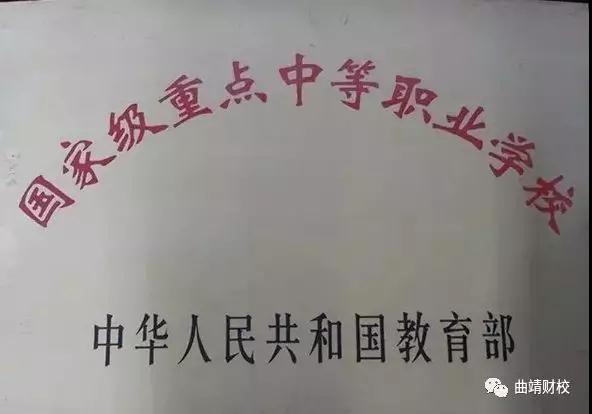 国家级重点中等职业学校
中华人民共和国教育部
曲靖财校